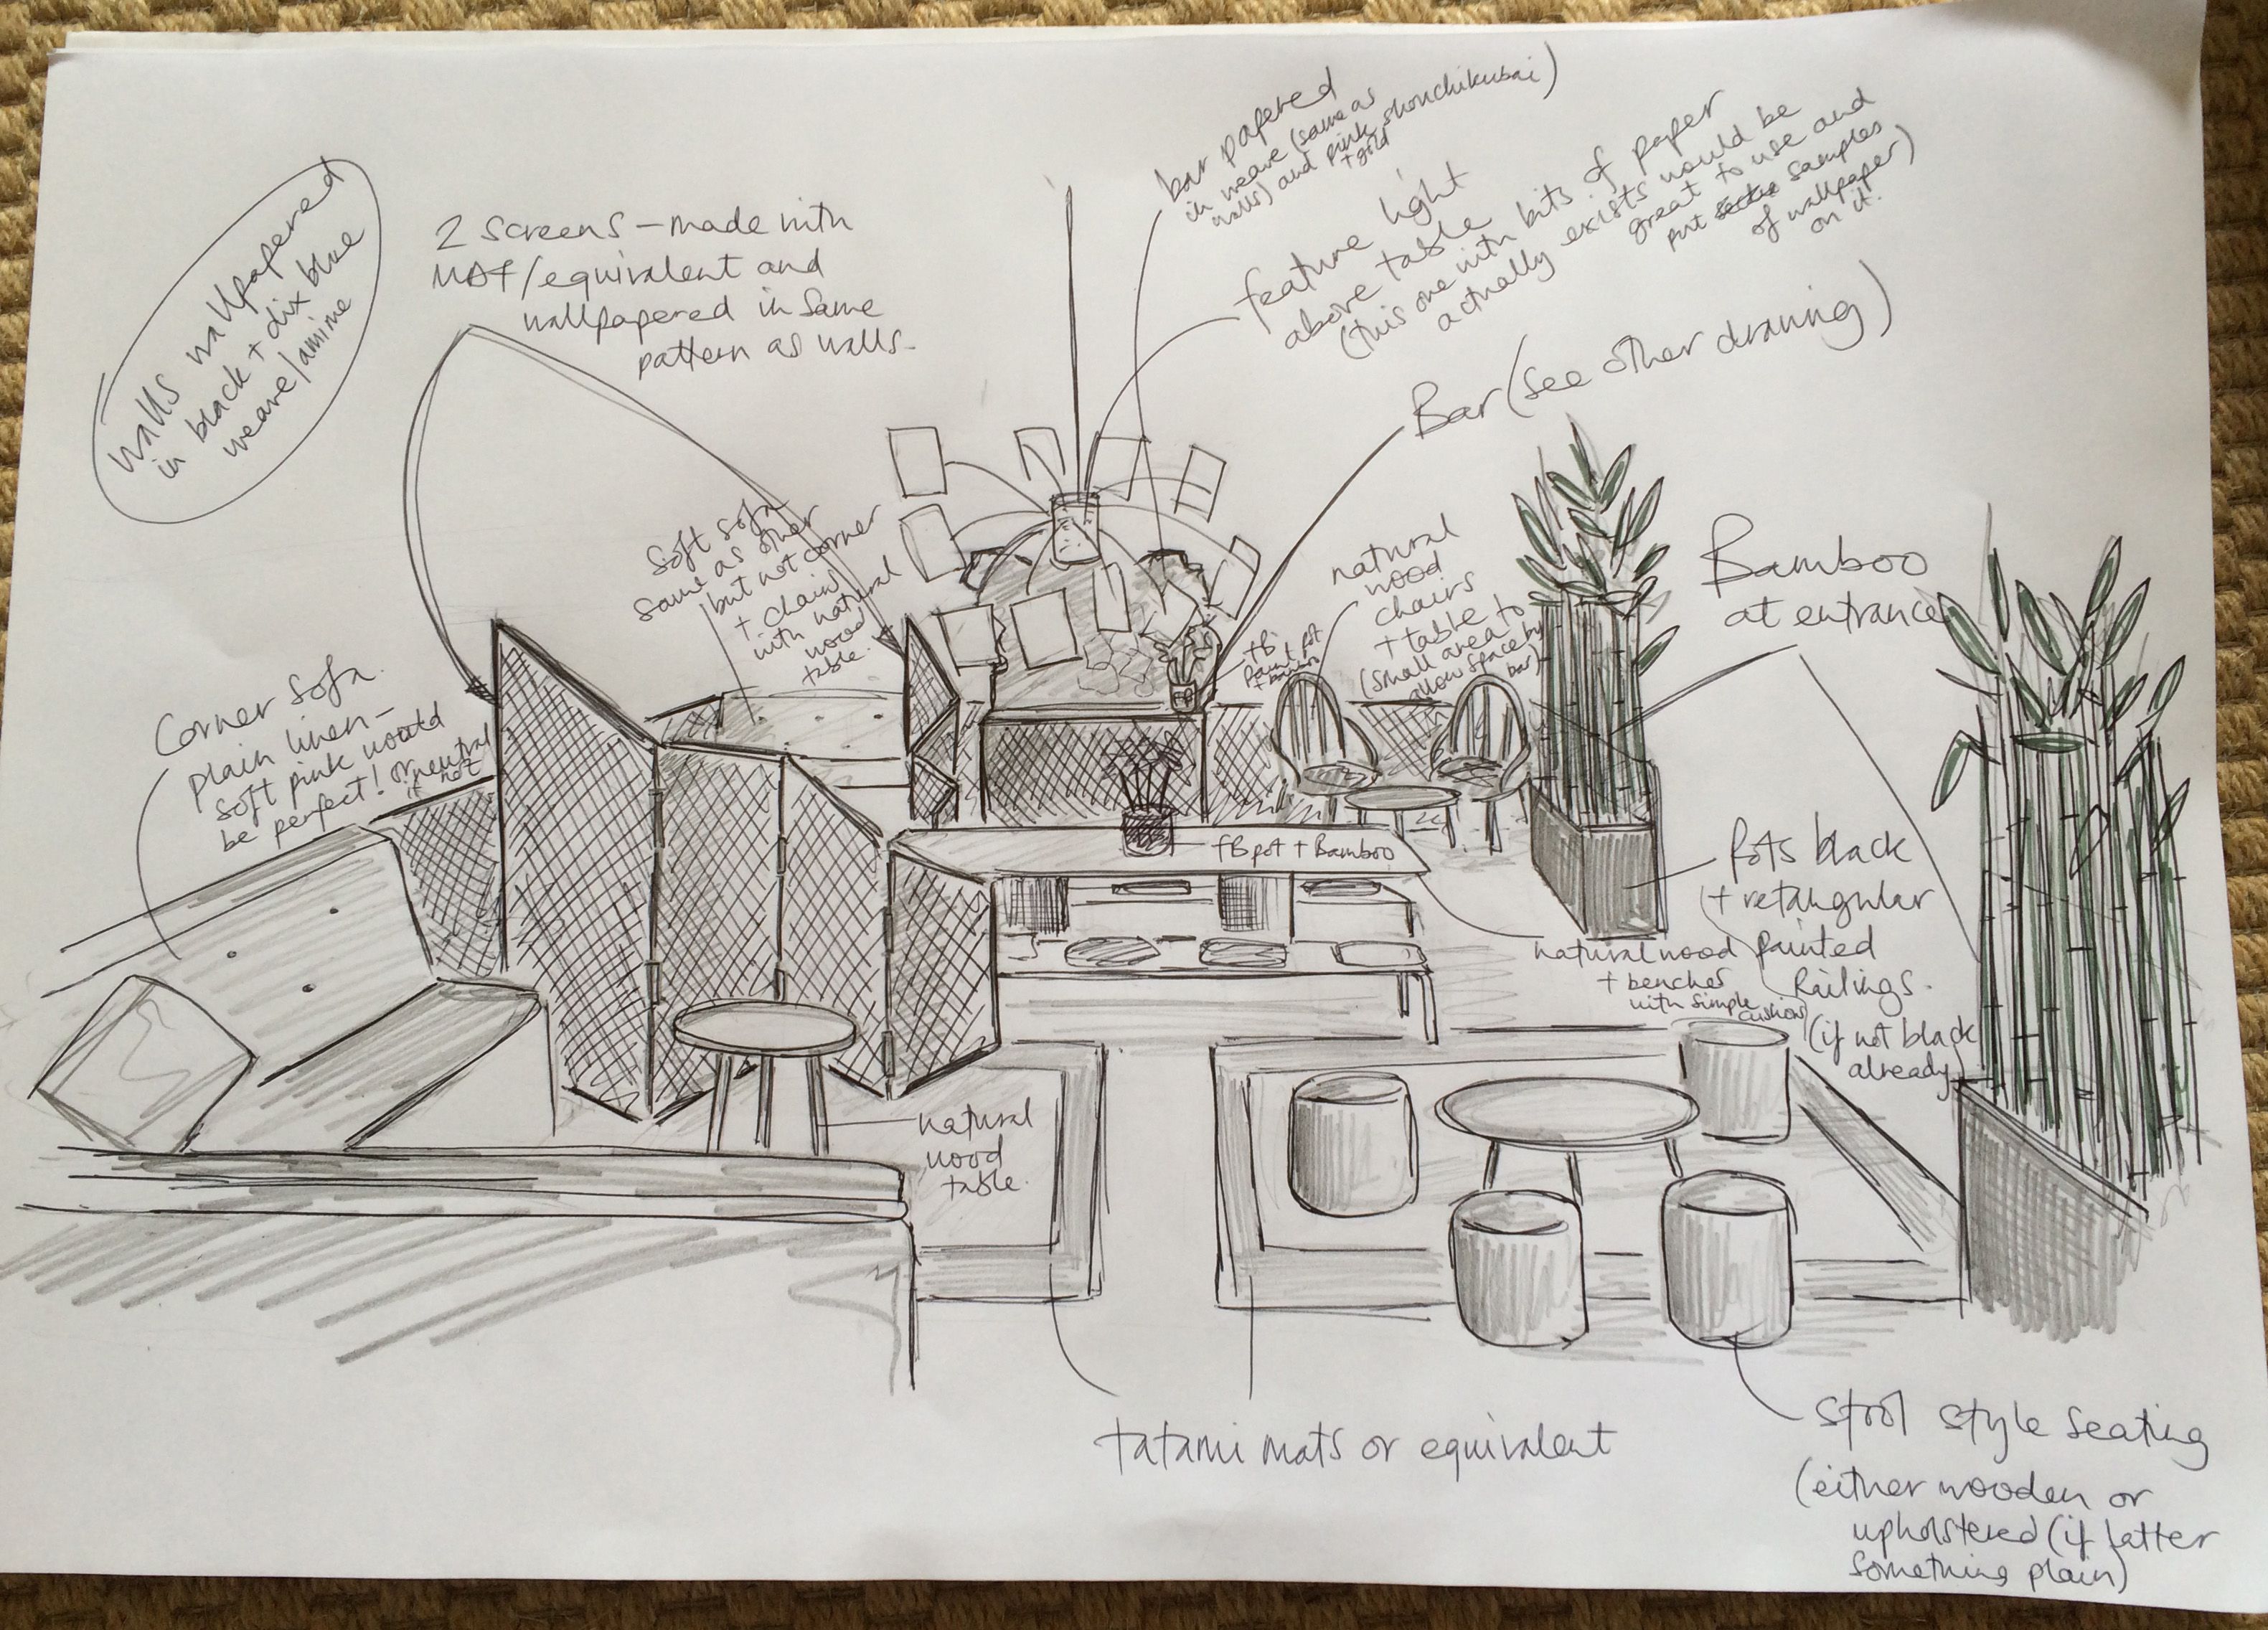 walls wallpapered
in black + dix blue
weave/amime
2 screens – made with
MDF/equivalent and
wallpapered in same
pattern as walls.
bar papered
in weave (same as
walls) and pink shouchikubai)
+ gold
feature light
above table
(this one with bits of paper
actually exists would be
great to use and
put samples
of wallpaper
on it.)
Bar (see other drawing)
soft sofa
same as other
but not corner
+ chairs
with natural
wood
table.
natural
wood
chairs
+ table
(small area to
allow space by
bar)
FB
paint pot
+ bamboo
Bamboo
at entrance
Corner sofa.
plain linen –
soft pink would
be perfect! or neutral
if not
FB pot + Bamboo
Pots black
+ retangular
painted
railings.
(if not black
already)
natural wood
+ benches
with simple
cushions
natural
wood
table.
tatami mats or equivalent
stool style seating
(either wooden or
upholstered (if latter
something plain)